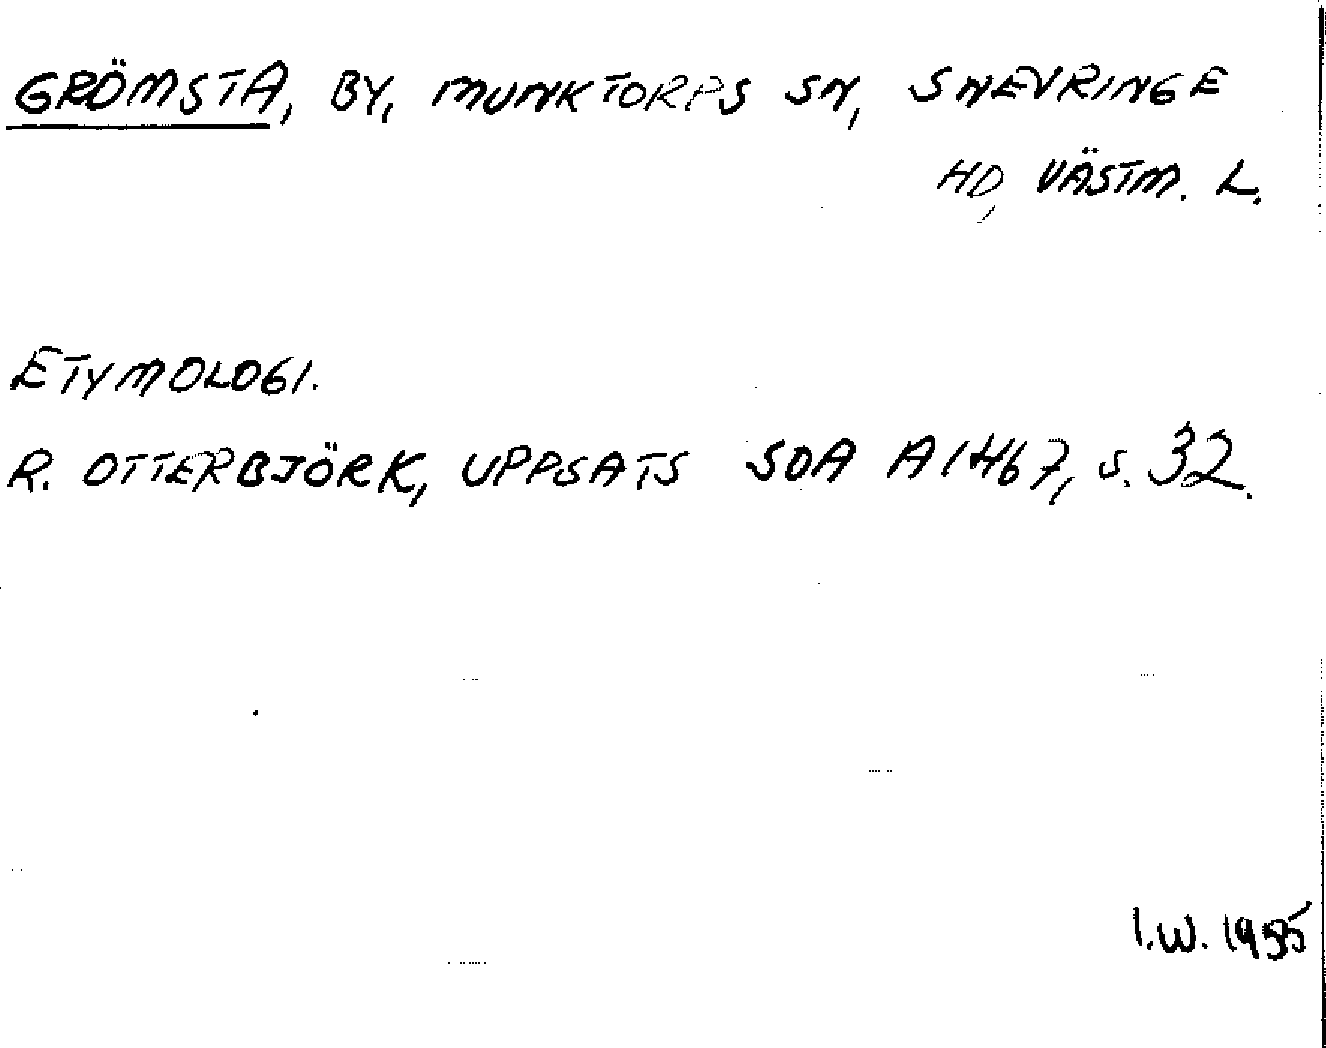 GRÖMSTA, BY, MUNKTORPS SN, SNEVRINGE
HD, VÄSTM. L.
ETYMOLOGI.
R. OTTERBJÖRK, UPPSATS SOA A1467, s. 32.
I.W. 1955